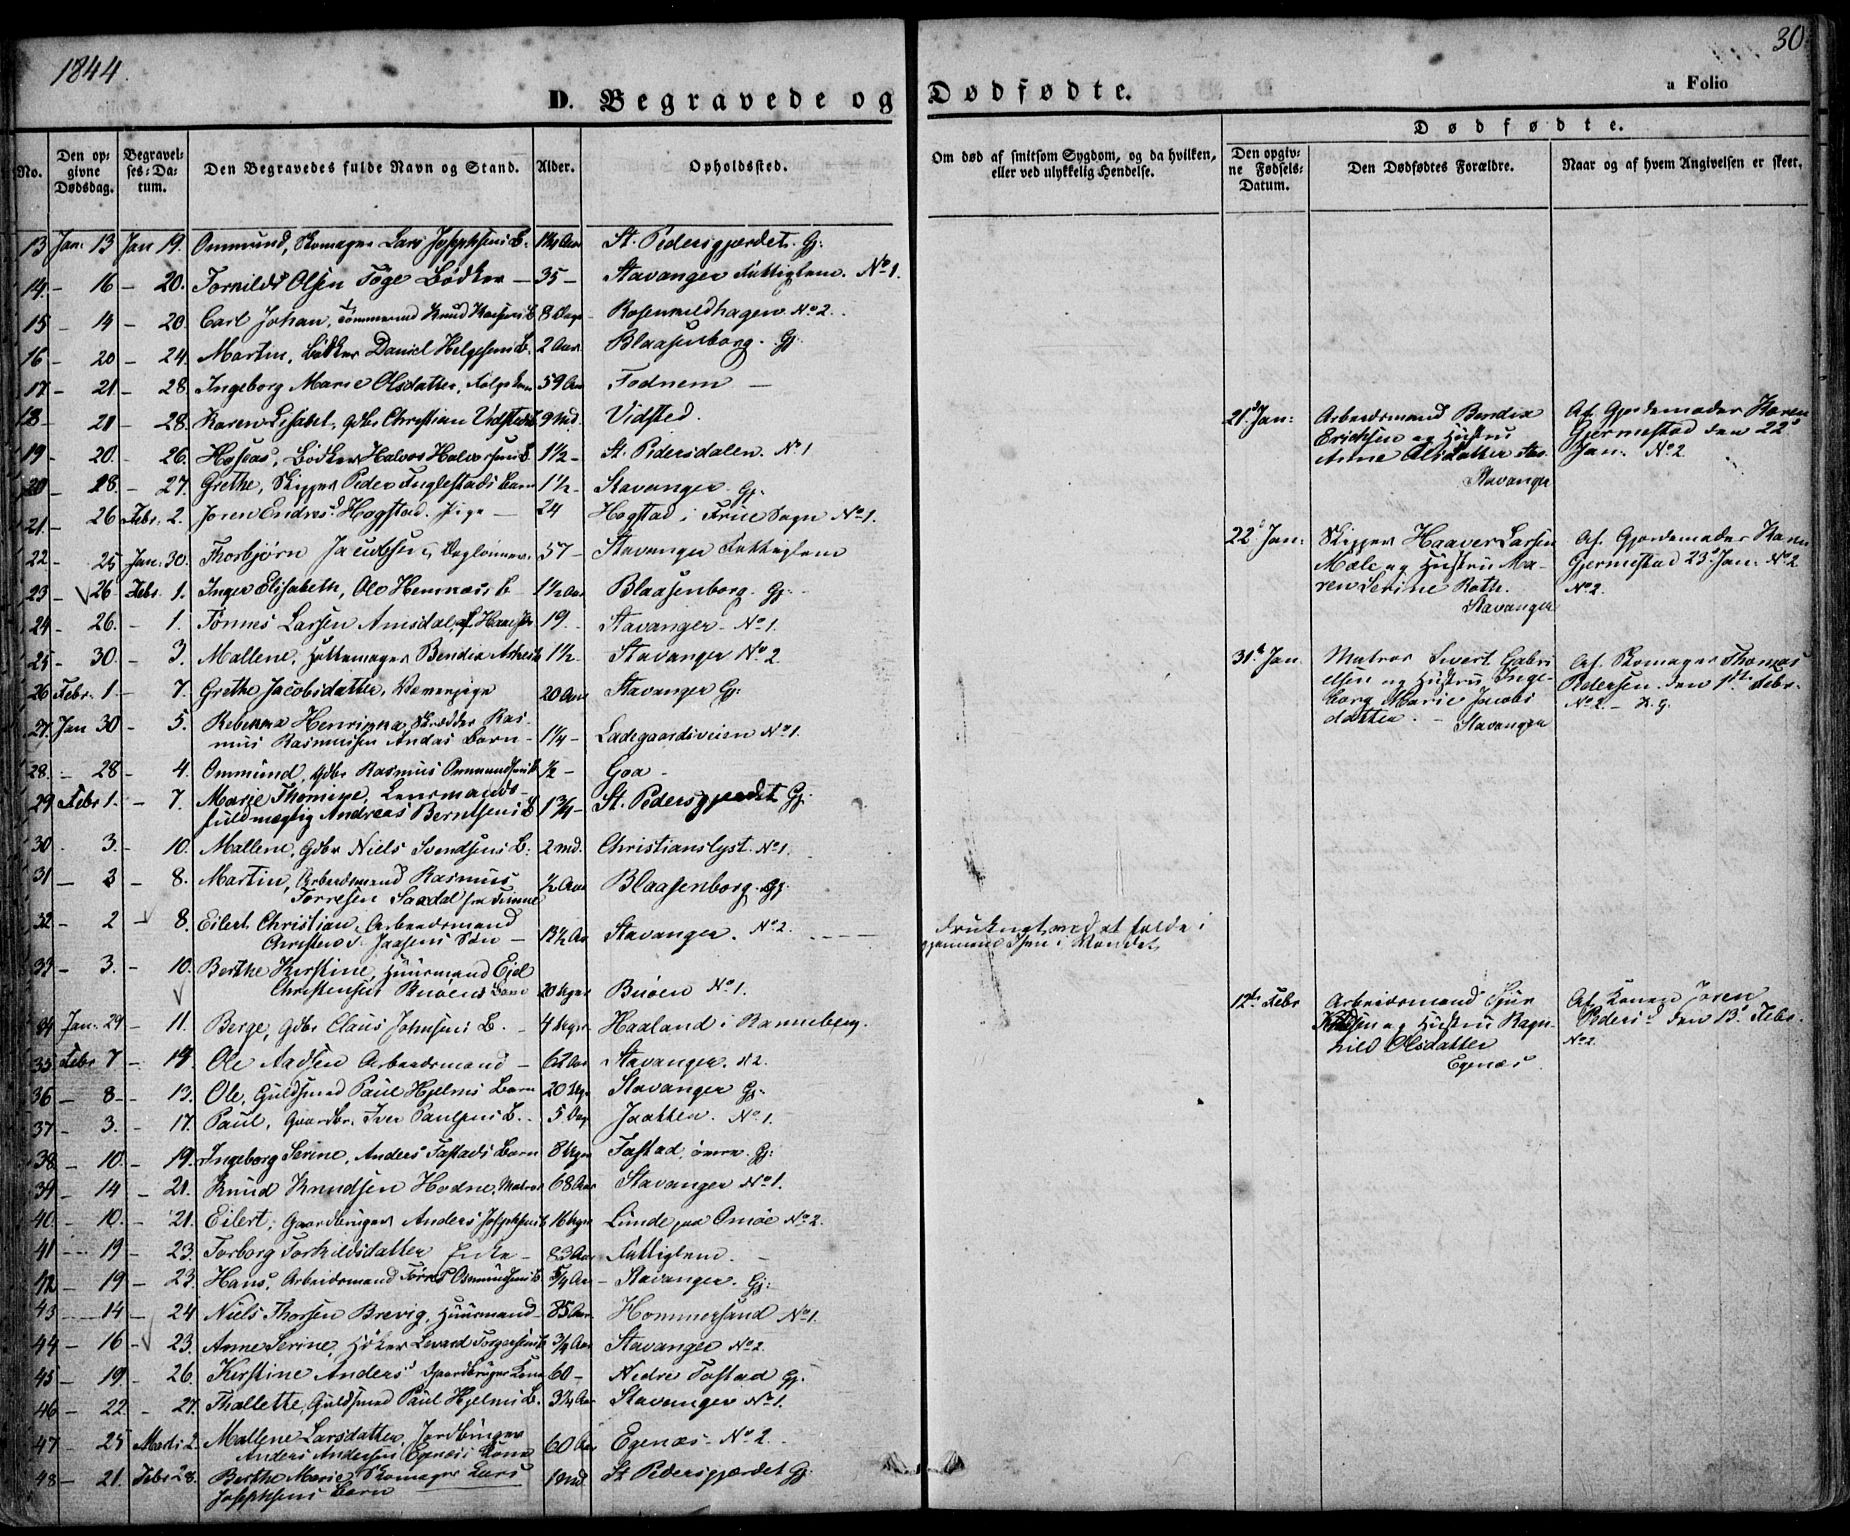 1844.
30
D. Begravede og Dødfødte.
a Folio
Dødfødte.
No.
Den opgivne Dødsdag.
Begravelses-Datum.
Den Begravedes fulde Navn og Stand.
Alder.
Opholdssted.
Om død af smitsom Sygdom, og da hvilken, eller ved ulykkelig Hendelse.
Den opgivne Fødsels-Datum.
Den Dødfødtes Forældre.
Naar og af hvem Angivelsen er skeet.
13 Jan: 13 Jan 19. Ommund, Skomager Lars Josephsens B. St. Pedersgjærdet. Gj:
14. - 16 - 20. Olsen Bødker - 35 - Stavanger Fattiglem. No 1.
15 - 14 - 20. Carl Johan, Tømmermd Knud B 8 Dage Rosenkildhagen No 2.
16 - 20 - 24. Martin, Daniel Helgesens B. 2 Aar Blaasenborg. Gj.
17 - 21 - 28. Ingeborg Marie Olsdatter, 59 Aar Fodnem -
18 - 21 - 28. Karen Lisabet, Gdbr Christian 9 Md. Vidsted.
19 - 20. - 26. Bødker Halvor Halvorsens B 1½ - St. Pedersdalen. No 1
20 - 18. - 27. Grethe, Skipper Peder Fuglestads Barn 1½ - Stavanger. Gj.
21. - 26 Febr. 2. Joren Endresd. Hogstad. Pige - 24 Hogstad i Frue Sogn No 1.
22. - 25 Jan: 30. Thorbjørn Jacobsen, Daglønner. 57 - Stavanger Fattiglem
23 - 26 Febr. 1. Inger Elisabeth, Ole B 1½ Aar Blaasenborg. Gj.
24 - 26. - 1. Tønnes Larsen Amsdal, 19. Stavanger - No 1.
25 - 30. - 3. Mallene, Hattemager Bendix 1½ Stavanger No 2
26 Febr. 1 - 7. Grethe Jacobsdatter, 20 Aar Stavanger Gj.
27. Jan 30 - 5. Rebekka Henrikka, Skrædder Ras-
mus Rasmussen Andas Barn - 1¼ - Ladegaardsveien No 1.
28. - 28 - 4. Ommund, Gdbr Rasmus Ommundsens ½ - Goa -
29 Febr 1. - 7. Marie Thomine, Lensmands-
fuldmægtig Andreas Berntsens B 1¾ - St. Pedersgjærdet Gj.
30 - 3. - 10. Mallene, Gdbr Niels Svendsens B. 2 Md. Christianslyst. No 1.
31 - 3 - 8. Martin, Arbeidsmand Rasmus
Torresen ½ Aar Blaasenborg. Gj.
32 - 2 - 8. Eilert Christian, Arbeidsmand
Søn - Stavanger. No 2. druknet ved at falde i
gjennem Isen i Vandet
33 - 3. - 10. Berthe Kirstine, Huusmand Eiel
Christensen Buøens Barn 20 Uger Buøen No 1.
34 Jan. 29 - 11. Berge, Gdbr Claus Johnsens B. - 4 Uger Haaland i Ranneberg.
35 Febr 7 - 14. Ole Aadsen Arbeidsmand - 62 Aar Stavanger. N2.
36 - 8 - 13. Ole, Guldsmed Paul Hjelms Barn 20 Uger Stavanger Gj.
37 - 3. - 17. Paul, Gaardbr. Iver Paulsens B. 5 Dag Jaatten. No 1.
38 - 10. - 19. Ingeborg Serine, Anders Tastads Barn 8 Uger Tastad, øvre. Gj.
39 - 14 - 21. Knud Knudsen Hodne, Matros 68 Aar Stavanger No 1.
40. - 10. - 21. Eilert, Gaardbruger Anders 16 Uger Lunde paa Omøe No 2.
41 - 19 - 23. Torborg Torkildsdatter Enke - 83 Aar Fattiglem. -
42 - 19 - 23. Hans, Arbeidsmand Tørres B. 5/4 Aar - Stavanger. Gj:
43 - 14 - 24 Niels Thorsen Brevig, Huusmand - 85 Aar. Hommersand No 1.
44 - 16 - 23. Anne Serine, Høker ¾ Aar Stavanger No 2
45 - 19. - 26. Kirstine Andersd Gaardbruger Kone 60 - Nedre Tastad Gj.
46 - 22 - 27. Thallette, Guldsmed Paul Hjelms B. Stavanger No 1.
47 - 25 Marts 2. Mallene Larsdatter, Jordbruger
Anders Andersen Egenæs Kone 60 Aar Egenæs - No 2.
48 - 21. Febr 28. Berthe Marie, Skomager Lars
Josephsens Barn 1 Md. St. Pedersgjærdet Gj.
21d Jan: Arbeidsmand Bendix
Erichsen og Hustru
Anne Olsdatter
Stavanger
Af Gjordemoder Karen
Gjermestad den 22d
Jan. No 2
22d Jan: Skipper Haaver Larsen
Mæle og Hustru Ma-
ren Serine Roth.
Stavanger
Af. Gjordemoder Karen
Gjermestad 23d Jan. No 2
No 2.
31d Jan Matros Sivert Gabri
elsen og Hustru Inge-
borg Marie Jacobs
datter. - Stavanger
Af. Skomager Thomas
Pedersen. den 1ste Febr.
No 2.
12te Febr Arbeidsmand
og Hustru Ragn-
hild Olsdatter
Egenæs.
Af Konen Joren
Pedersd. den 13d Febr.
No 2.